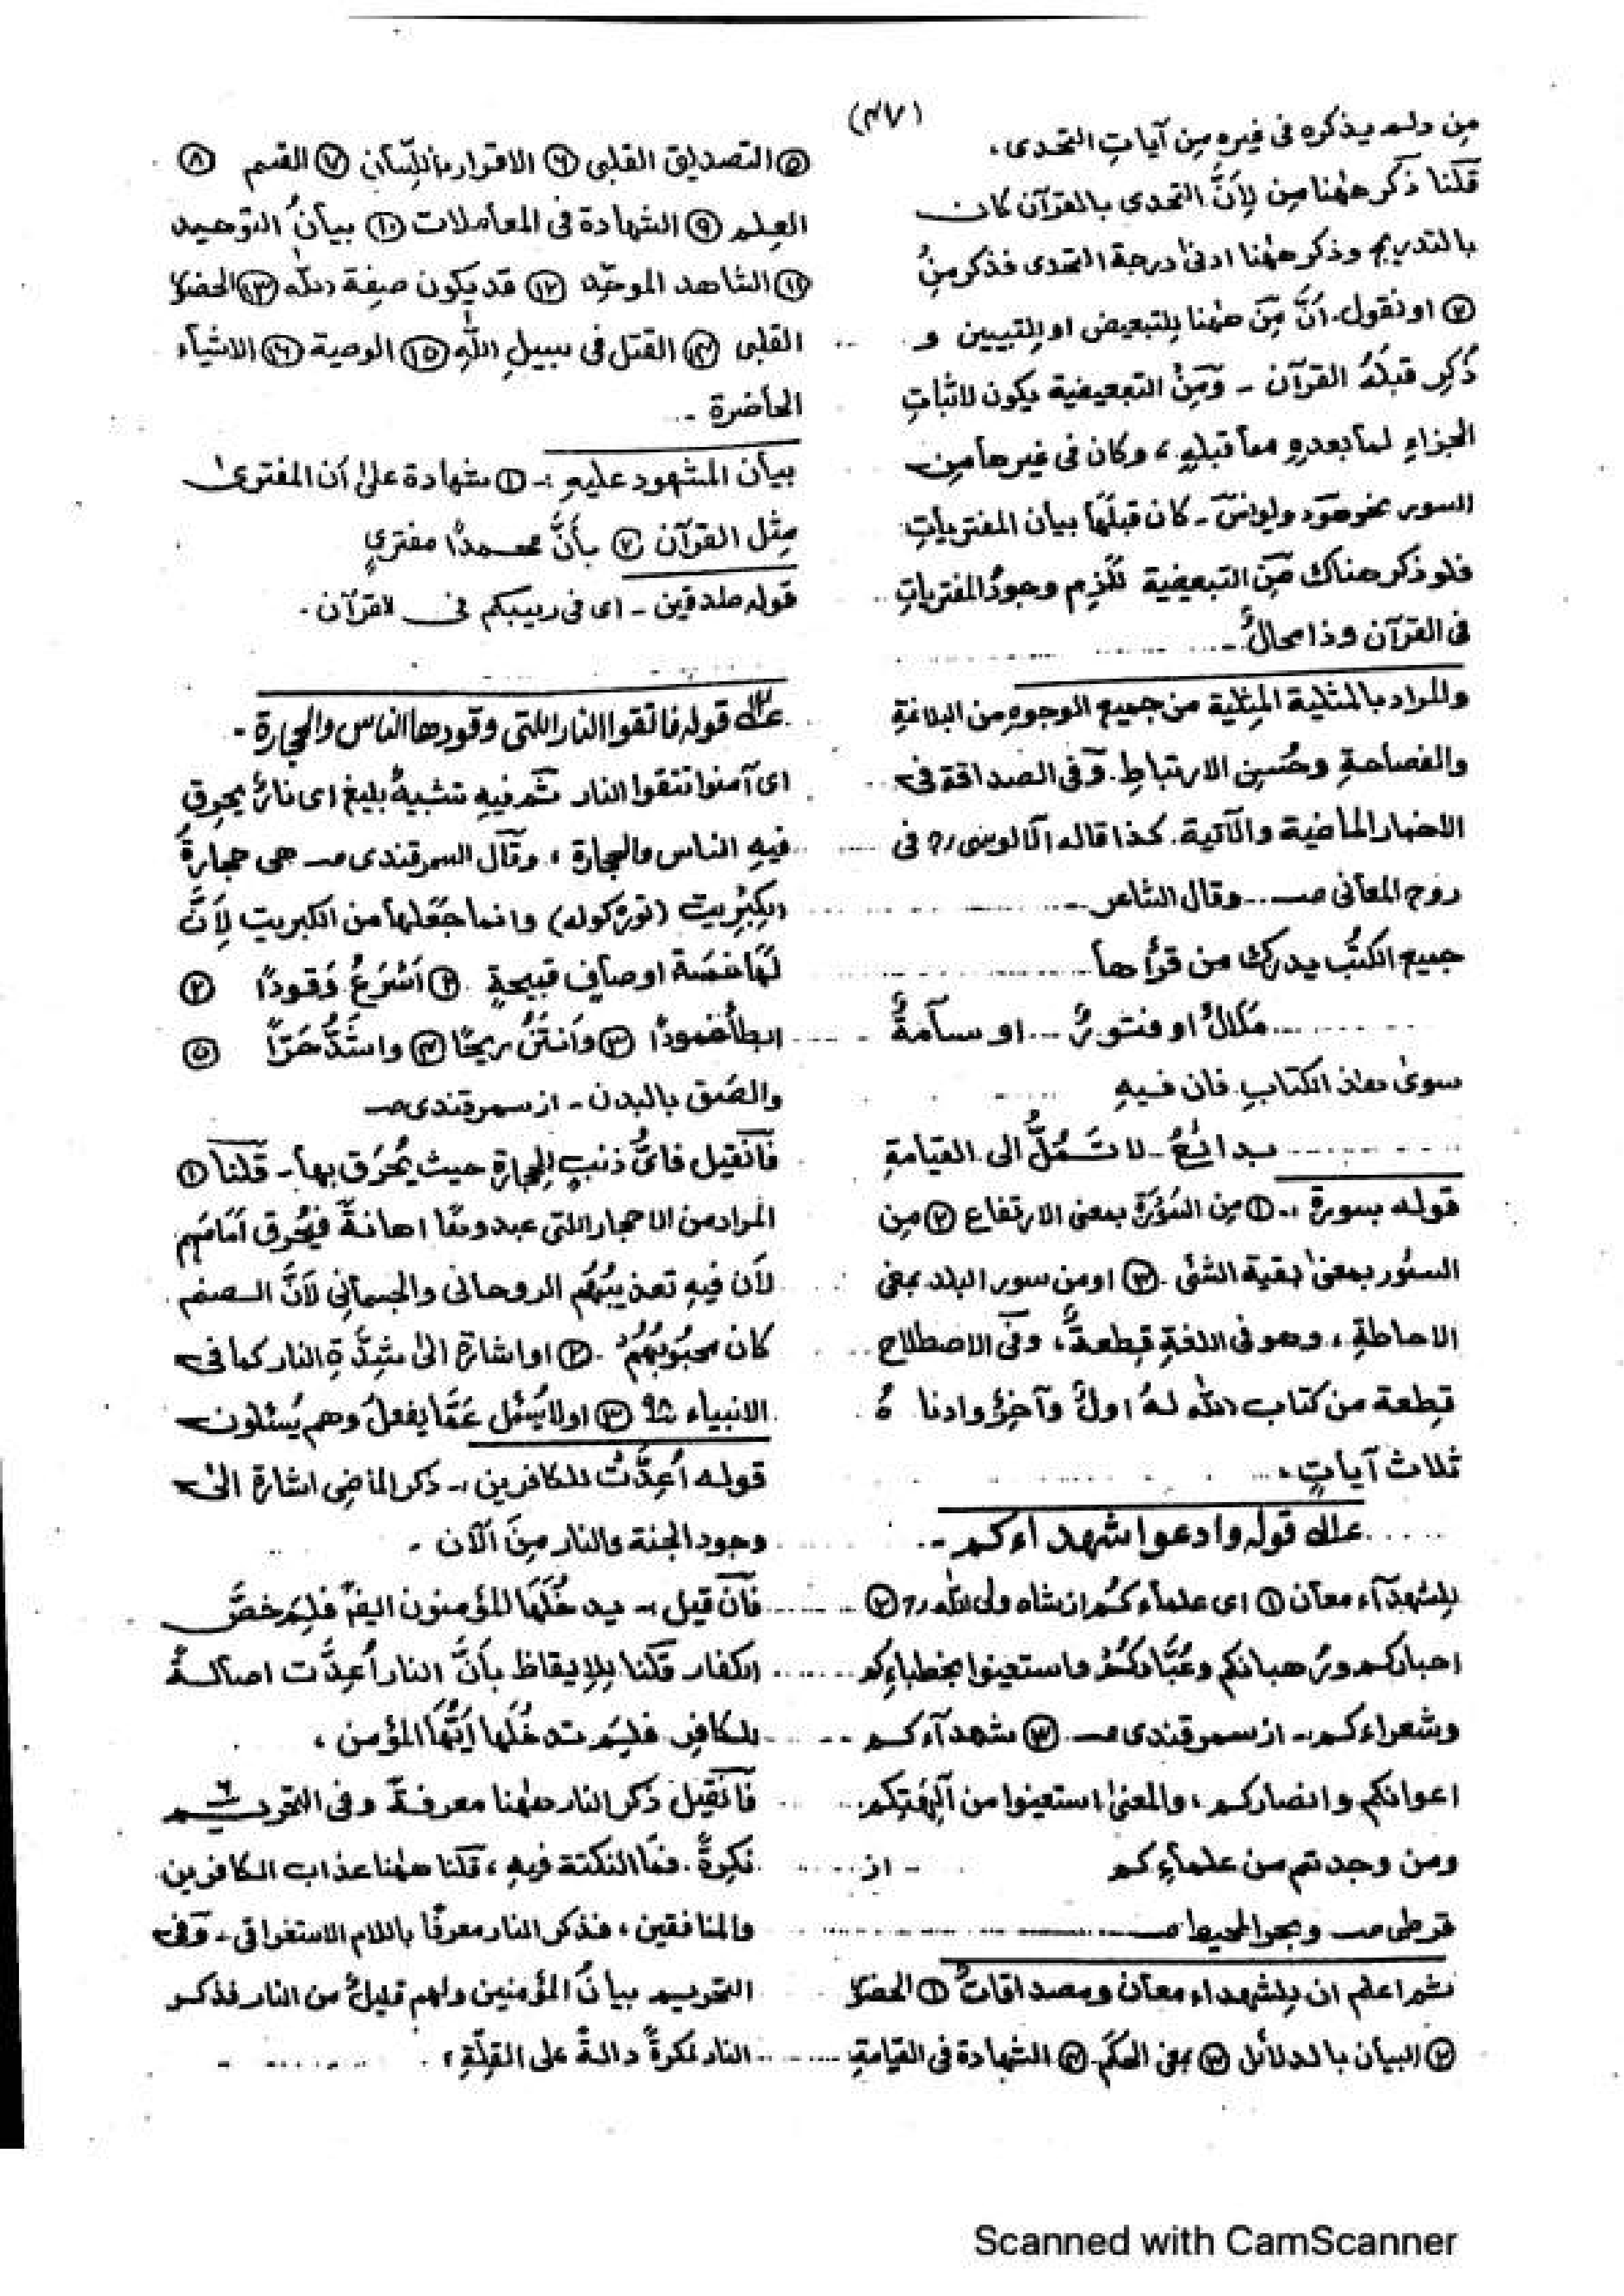 (٤٧)
مِن ولم يذكره فى غيره مِن آياتِ التحدى،
قلنا ذكر هٰهنا مِن لِأنَّ التحدى بالقرآن كان
بالتدريج وذكر هٰهنا ادنىٰ درجة التحدى فذكر مِنْ
② او نقول أنَّ مِن هٰهنا لِلتبعيض او لِلتبيين و
ذُكِر قبلَهُ القرآن - ومِنْ التبعيضية يكون لاثباتِ
الجزاءِ لما بعدهِ مما قبلهِ، وكان فى غيرها مِن
السور نحو هود ويونس - كان قبلَها بيان المفترياتِ
فلو ذكر هناك مِن التبعيضية لَلَزِم وجودُ المفترياتِ
فى القرآن وذا محالٌ -
والمراد بالمثلية المِثلية من جميع الوجوهِ مِن البلاغةِ
والفصاحةِ وحُسنِ الارتباطِ. وفى الصداقة فى
الاخبار الماضية والآتية. كذا قاله الآلوسى رح فى
روح المعانى صـ وقال الشاعر
جميع الكتب يدرك من قرأها
مَلالٌ او فتورٌ او سآمةٌ
سوىٰ هذا الكتابِ فان فيهِ
بدائعُ - لا تُمَلُّ الى القيامةِ
قوله بسورة :- ① مِن السُؤْرَة بمعنى الارتفاع ② مِن
السؤر بمعنىٰ بقية الشئى. ③ او من سور البلد بمعنى
الاحاطةِ، وهو فى اللغةِ قِطعةٌ، وفى الاصطلاح
قِطعة من كتاب الله لهُ اولٌ وآخِرٌ وادناهُ
ثلاث آياتٍ،
قوله وادعوا شهداءكم -
لِلشهدآء معانٍ ① اى علماءكُم از شاه ولى الله رح ②
احباركم ورهبانكم وعُبَّادكُمْ واستعينوا بخطباءِكم
وشعراءكم :- از سمرقندى صـ ③ شهدآءكم
اعوانكم وانصاركم، والمعنىٰ استعينوا من آلِهَتِكم
ومن وجدتم من علماءِكم - از
قرطبى صـ وبحر المحيط صـ
ثم اعلم ان لِلشهداء معان ومصداقاتٌ ① الحضور
② البيان بالدلائل ③ بمعنى الحكم ④ الشهادة فى القيامةِ
⑤ التصديق القلبى ⑥ الاقرار باللِّسان ⑦ القسم ⑧
العِلم ⑨ الشهادة فى المعاملات ⑩ بيانُ التوحيد
⑪ الشاهد الموحِّد ⑫ قد يكون صِفة الله ⑬ الحضور
القلبى ⑭ القتل فى سبيلِ اللهِ ⑮ الوصية ⑯ الاشياء
الحاضرة -
بيان المشهود عليهِ :- ① شهادة علىٰ أن المفترىٰ
مِثل القرآن ② بأنَّ محمدًا مفترٍي
قوله صٰدقين - اى فى ريبكم فى القرآن -
قوله فاتقوا النار اللتى وقودها الناس والحجارة -
اى آمنوا تتقوا النار ثم فيهِ تشبيهٌ بليغ اى نارٌ يحرِق
فيهِ الناس والحجارة، وقال السمرقندى صـ هى حجارةُ
الكِبْرِيت وانما جعلها من الكبريت لِأنَّ
لها خمسة اوصافٍ قبيحةٍ ① أَسْرَعُ وَقودًا ②
ابطأ خمودًا ③ وأنتَنُ ريحًا ④ واشَدُّ حَرًّا ⑤
والصَق بالبدن - از سمرقندى صـ
فان قيل فاىُّ ذنبٍ لِلحجارةِ حيث يُحرَق بها - قلنا ①
المراد من الاحجار اللتى عبدوها اهانةً فيُحرق أمامَهم
لأن فيهِ تعذيبُهُم الروحانى والجسمانى لأنَّ الصنم
كان محبُوبُهُمْ. ② او اشارة الىٰ شِدَّةِ النار كما فى
الانبياء ③ او لا يُسئل عَمَّا يفعلُ وهم يُسئلون
قوله أُعِدَّتْ للكافرين :- ذكر الماضى اشارة الىٰ
وجود الجنة والنار مِنَ الآن -
فان قيل :- يدخُلَها المؤمنون ايضًا فلِمَ خصَّ
الكفار قلنا لِلإيقاظ بأنَّ النار أُعِدَّت اصالةً
للكافرِ فلِمَ تدخُلَها ايُّها المؤمن،
فان قيل ذكر النار هٰهنا معرفةً وفى التحريم
نكِرةً. فما النكتة فيهِ، قلنا هٰهنا عذاب الكافرين
والمنافقين، فذكر النار معرفًا باللام الاستغراقى - وفى
التحريم بيانُ المؤمنين ولهم قليلٌ من النار فذكر
النار نكرةً دالةً على القِلَّةِ،
Scanned with CamScanner